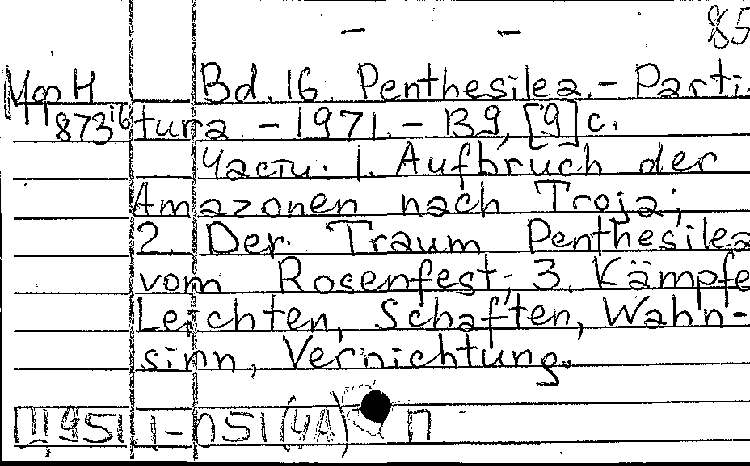 — — 85
МфН Bd. 16. Penthesilea. – Parti-
873¹⁶ tura – 1971. – 139, [9] с.
Части: 1. Aufbruch der
Amazonen nach Troja;
2. Der Traum Penthesilea
vom Rosenfest; 3. Kämpfe
Leichten, Schaften, Wahn-
sinn, Vernichtung.
951 1-051(4A) П